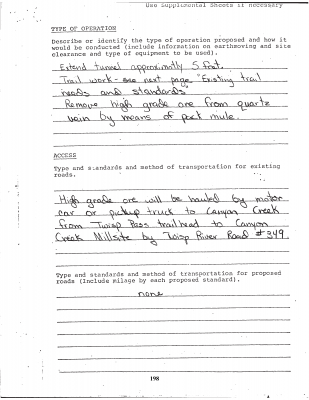 Use Supplemental Sheets if necessary
TYPE OF OPERATION
Describe or identify the type of operation proposed and how it
would be conducted (include information on earthmoving and site
clearance and type of equipment to be used).
Extend tunnel approximatly 5 feet.
Trail work - see next page "Existing trail
needs and standards"
Remove high grade ore from quartz
vein by means of pack mule.
ACCESS
Type and standards and method of transportation for existing
roads.
High grade ore will be hauled by motor
car or pickup truck to Canyon Creek
from Twisp Pass trailhead to Canyon
Creek Millsite by Twisp River Road #349.
Type and standards and method of transportation for proposed
roads (Include milage by each proposed standard).
none
198